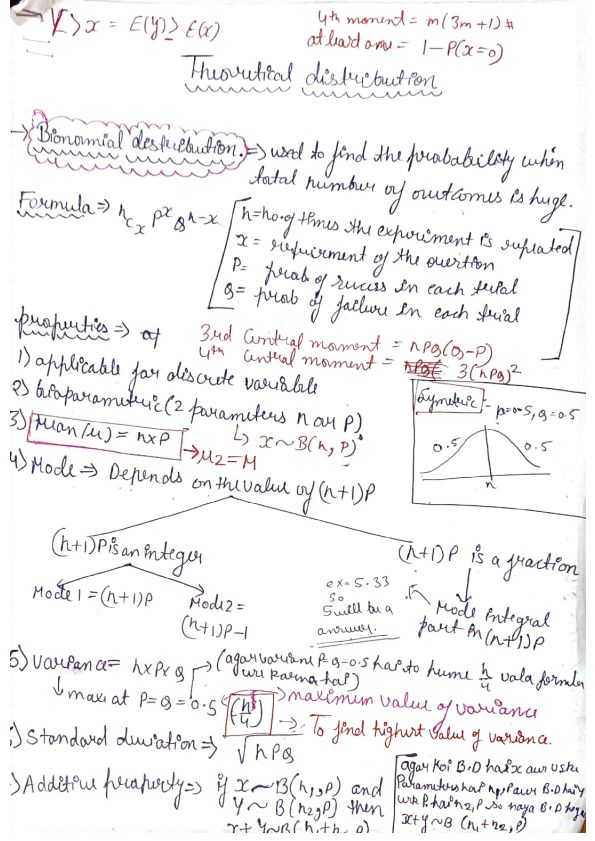 Y > x = E(y) ≥ E(x)
4th moment = m(3m+1)
at least one = 1 - P(x=0)
Theoretical distribution
→ Bionomial destribution. ⇒ used to find the probability when
total number of outcomes is huge.
Formula ⇒ nCx P^x Q^n-x
n = no. of times the experiment is repeated
x = requirment of the question
P = prob of success in each trial
Q = prob of failure in each trial
properties ⇒ of
3rd Central moment = nPQ(Q-P)
4th central moment = 3(nPQ)²
1) applicable for discrete variable
2) biaparametric (2 parameters n or P)
↳ x~B(n, P)
3) Mean(u) = n×P
→ μ2 = M
Symetric - p=0.5, Q=0.5
0.5 0.5
n
4) Mode ⇒ Depends on the value of (n+1)P
(n+1)P is an integer
(n+1)P is a fraction
Mode 1 = (n+1)P
Mode 2 =
(n+1)P-1
ex = 5.33
so
5 will be a
answer.
Mode integral
part in (n+1)P
5) Variance = n×P×Q
(agar variane P=Q=0.5 hai to hume n/4 vala formula
use karna hai)
↳ max at P=Q=0.5 (n/4)
> maximum value of variance
→ To find highest value of variance.
) Standard deviation ⇒ √nPQ
) Additive property ⇒ if x~B(n1, P) and
Y~B(n2, P) then
x+Y~B(n1+n2, P)
agar koi B.D hai x aur uske
Parameters hai n1, P aur B.D hai Y
uske P. hai n2, P so naya B.D hoga
x+y~B (n1+n2, P)